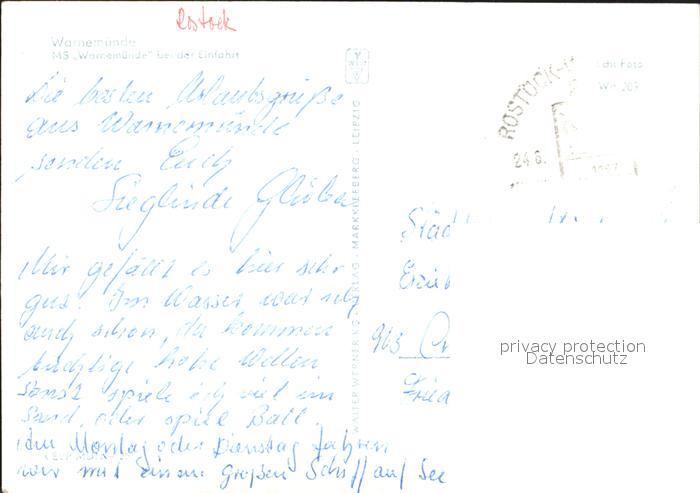 Rostock
Warnemünde
MS „Warnemünde" bei der Einfahrt
Die besten Urlaubsgrüße
aus Warnemünde
senden Euch
Sieglinde
Mir gefällt es hier sehr
gut. Im Wasser war ich
auch schon, da kommen
hohe Wellen
sonst spiele ich viel im
Sand, oder spiele Ball.
Am Montag oder Dienstag fahren
wir mit einem großen Schiff auf See
VERLAG - MARKKLEEBERG - LEIPZIG
ROSTOCK-
24.6.
Foto
Städ
privacy protection
Datenschutz